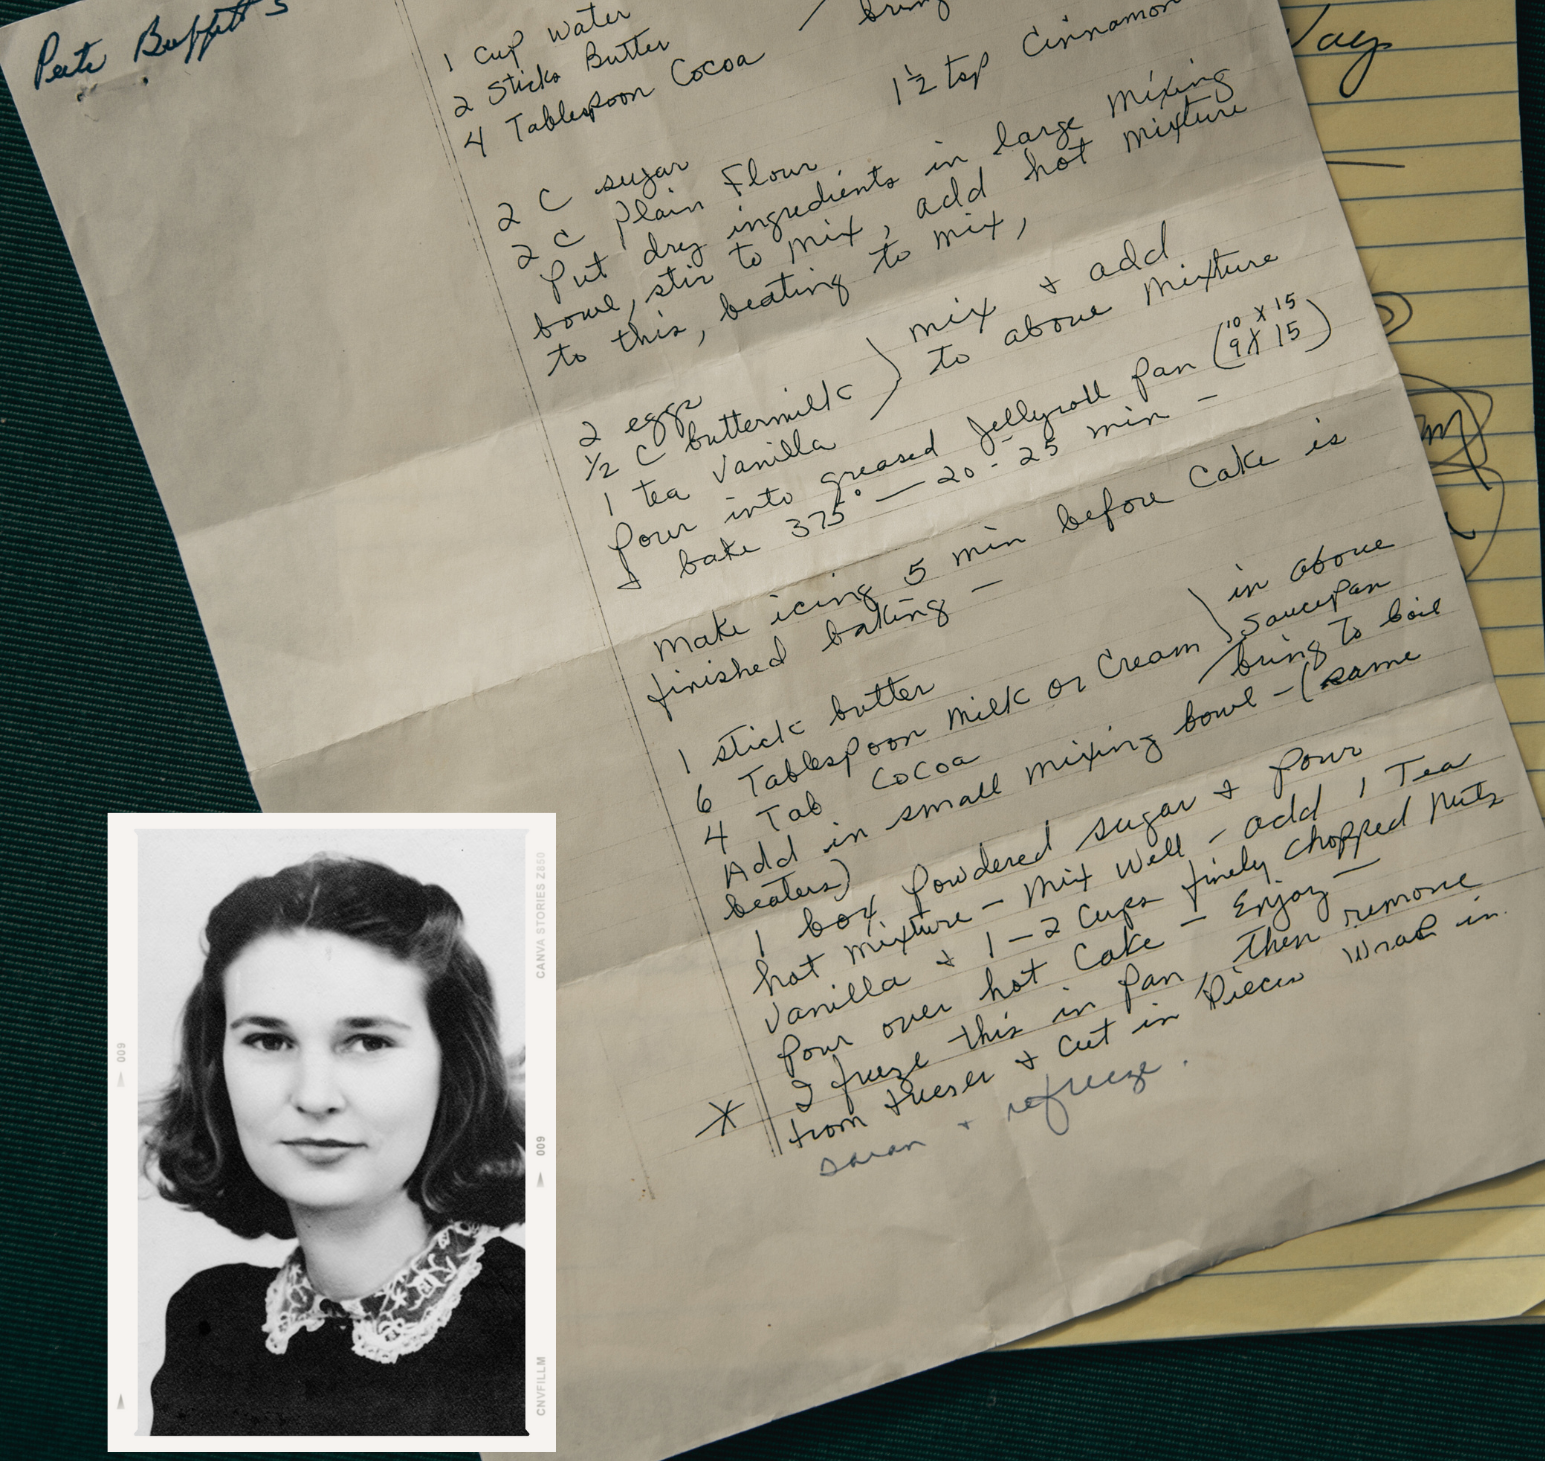 Pete Buffett's
1 Cup Water
2 Sticks Butter
4 Tablespoon Cocoa
bring
1½ tsp Cinnamon
2 C sugar
2 C Plain Flour
Put dry ingredients in large mixing
bowl, stir to mix, add hot mixture
to this, beating to mix,
2 eggs
½ C buttermilk
1 tea vanilla
mix & add
to above mixture
Pour into greased Jellyroll Pan (9X15)
10 X 15
& bake 375° — 20-25 min —
Make icing 5 min before cake is
finished baking —
1 stick butter
6 Tablespoon Milk or Cream
4 Tab Cocoa
in above
saucepan
bring to boil
Add in small mixing bowl - (same
beaters)
1 box powdered sugar & pour
hot mixture - Mix Well - add 1 Tea
Vanilla & 1-2 Cups finely chopped nuts
Pour over hot Cake - Enjoy -
* I freeze this in pan, then remove
from freezer & cut in pieces wrap in
saran & refreeze.
Way
CANVA STORIES Z850
009
009
CNVFILLM